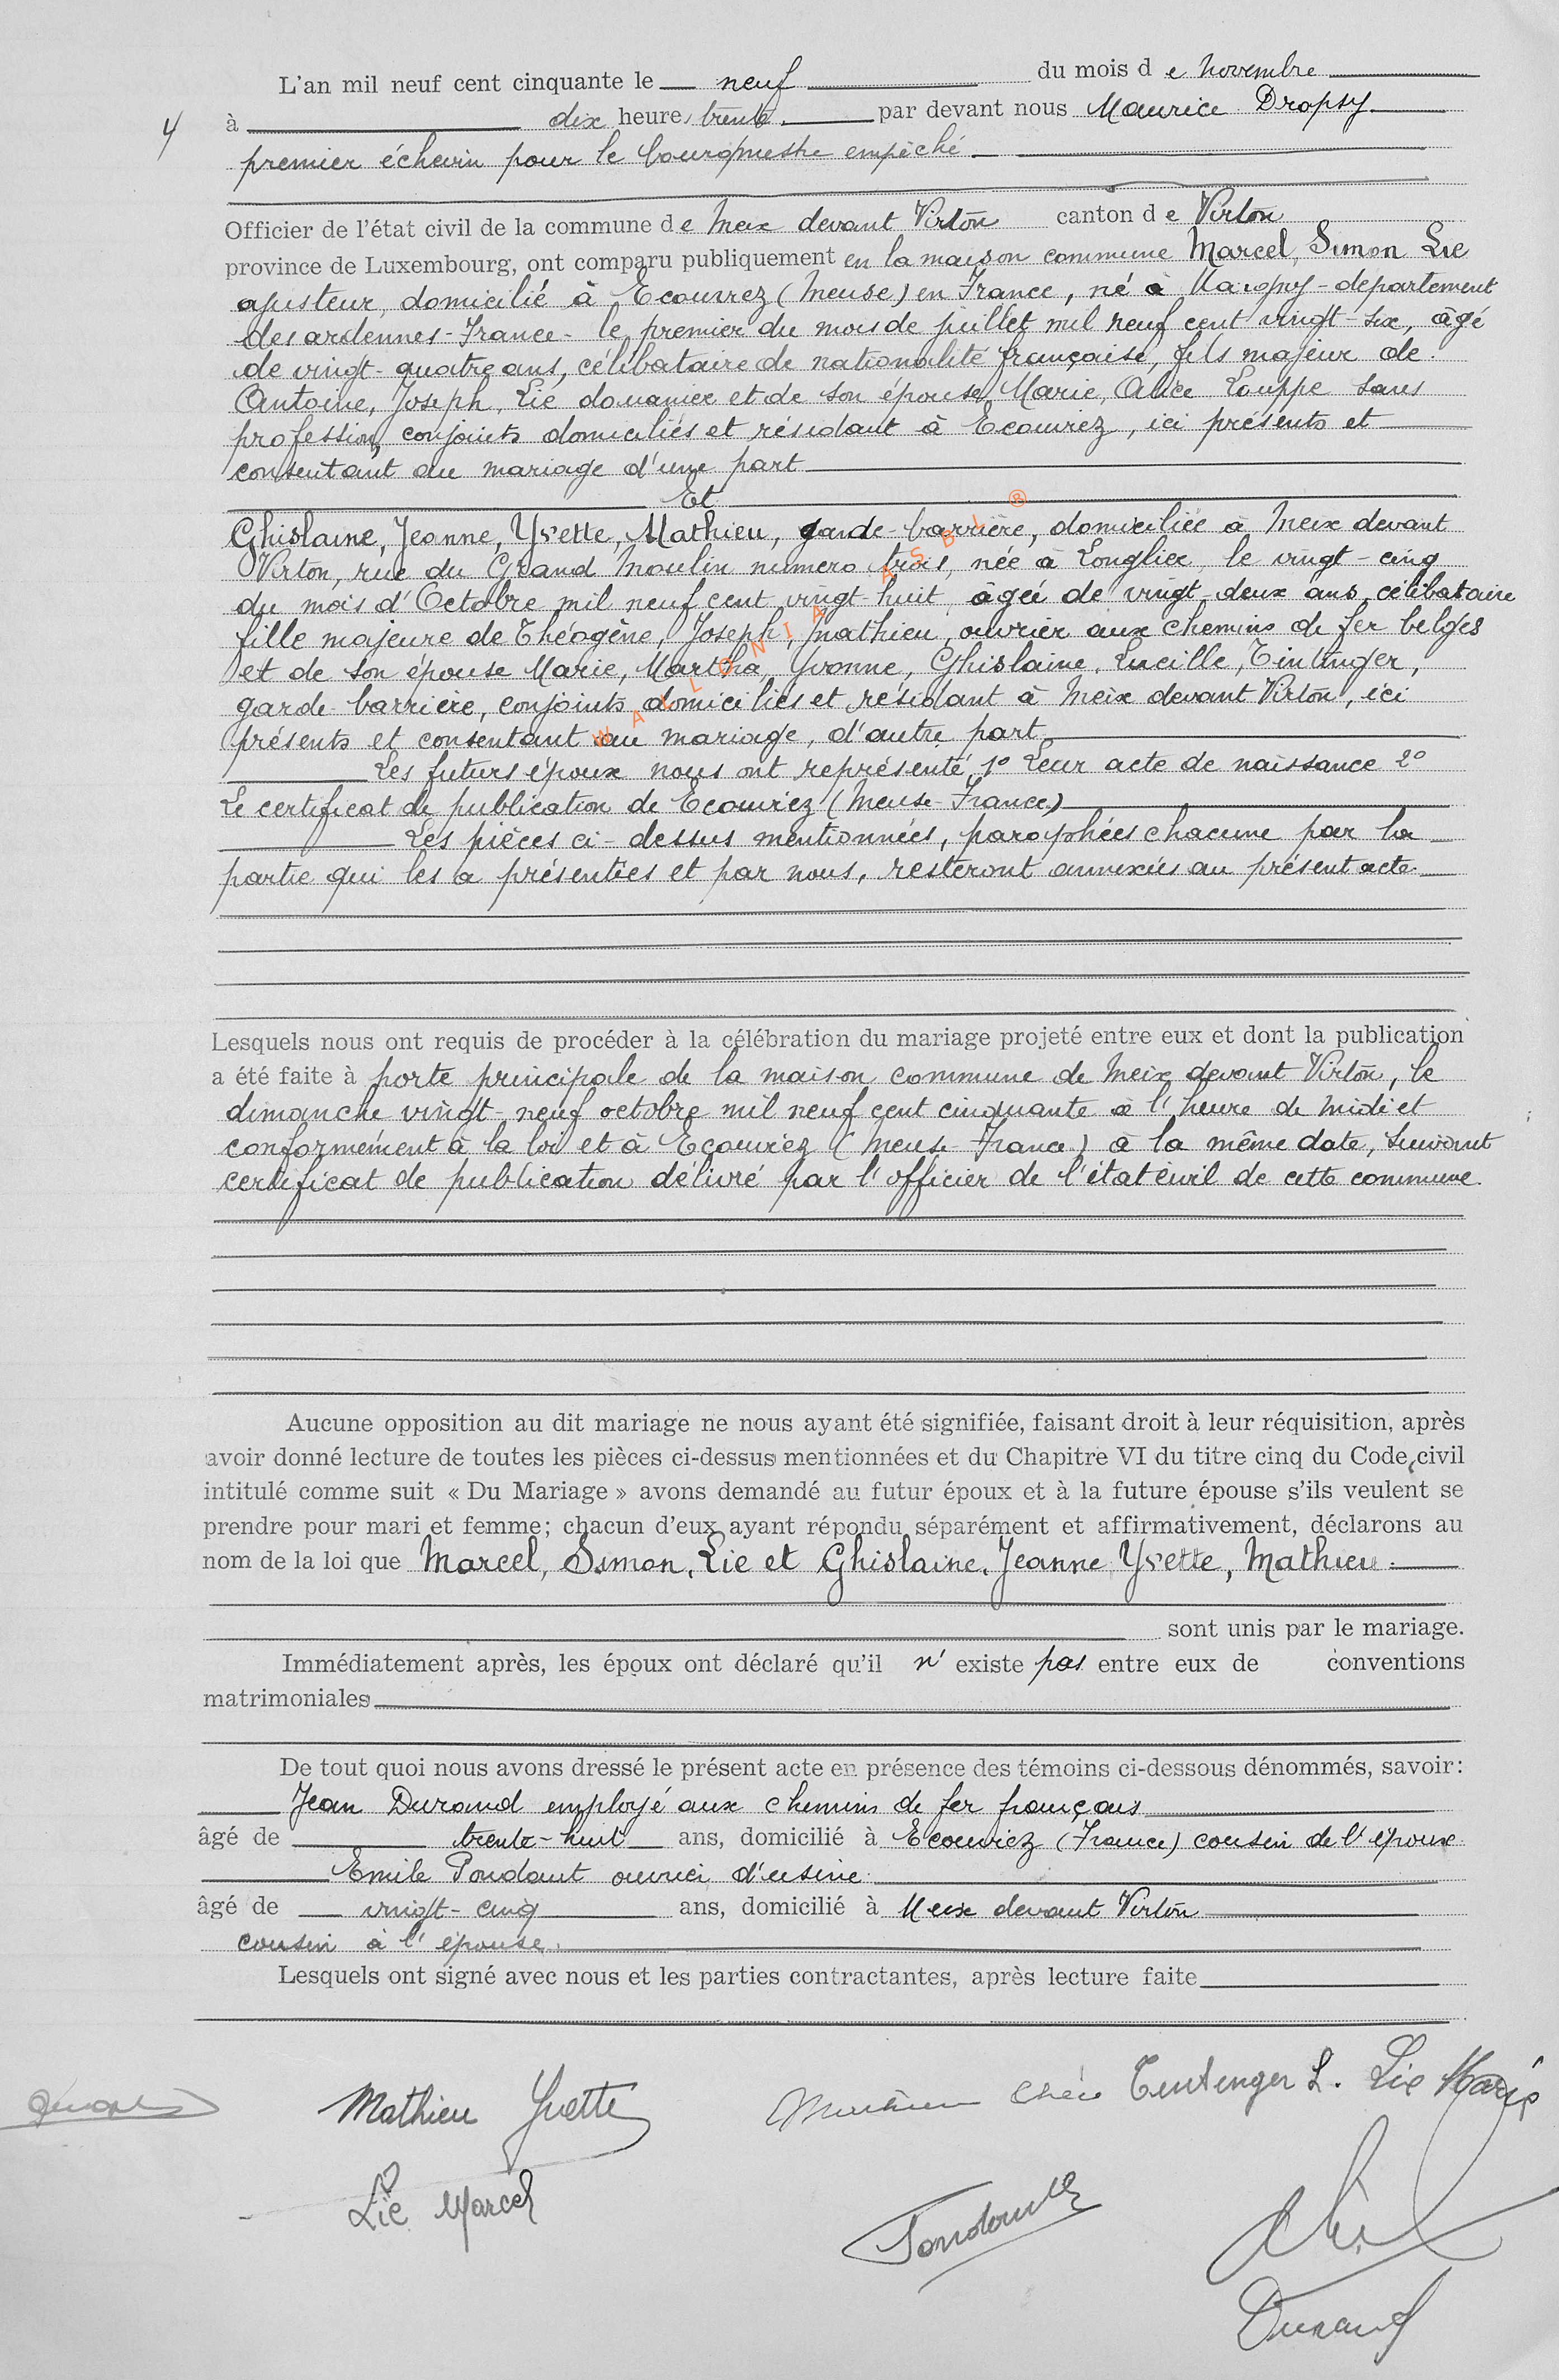 L'an mil neuf cent cinquante le neuf du mois de novembre
4 à dix heures trente par devant nous Maurice Dropsy
premier échevin pour le bourgmestre empêché
Officier de l'état civil de la commune de Meix devant Virton canton de Virton
province de Luxembourg, ont comparu publiquement en la maison commune Marcel, Simon Lié
ajusteur, domicilié à Ecouviez (Meuse) en France, né à - département
des ardennes - France - le premier du mois de juillet mil neuf cent vingt-six, âgé
de vingt-quatre ans, célibataire de nationalité française, fils majeur de
Antoine, Joseph, Lié douanier et de son épouse Marie, Alice Louppe sans
profession, conjoints domiciliés et résidant à Ecouviez, ici présents et
consentant au mariage d'une part
Et
Ghislaine, Jeanne, Yvette, Mathieu, garde-barrière, domiciliée à Meix devant
Virton, rue du Grand Moulin numero trois, née à Longlier, le vingt-cinq
du mois d'Octobre mil neuf cent vingt-huit, âgée de vingt-deux ans, célibataire
fille majeure de Théogène, Joseph, Mathieu, ouvrier aux chemins de fer belges
et de son épouse Marie, Martha, Yvonne, Ghislaine, Lucille, Tintinger,
garde-barrière, conjoints domiciliés et résidant à Meix devant Virton, ici
présents et consentant au mariage, d'autre part
WALLONIA ASBL ®
Les futurs époux nous ont représenté 1° Leur acte de naissance 2°
Le certificat de publication de Ecouviez (Meuse-France)
Les pièces ci-dessus mentionnées, paraphées chacune par la
partie qui les a présentées et par nous, resteront annexées au présent acte.
Lesquels nous ont requis de procéder à la célébration du mariage projeté entre eux et dont la publication
a été faite à porte principale de la maison commune de Meix devant Virton, le
dimanche vingt-neuf octobre mil neuf cent cinquante à l'heure de midi et
conformément à la loi et à Ecouviez (Meuse-France) à la même date, suivant
certificat de publication délivré par l'officier de l'état civil de cette commune.
Aucune opposition au dit mariage ne nous ayant été signifiée, faisant droit à leur réquisition, après
avoir donné lecture de toutes les pièces ci-dessus mentionnées et du Chapitre VI du titre cinq du Code civil
intitulé comme suit « Du Mariage » avons demandé au futur époux et à la future épouse s'ils veulent se
prendre pour mari et femme; chacun d'eux ayant répondu séparément et affirmativement, déclarons au
nom de la loi que Marcel, Simon, Lié et Ghislaine, Jeanne, Yvette, Mathieu
sont unis par le mariage.
Immédiatement après, les époux ont déclaré qu'il n'existe pas entre eux de conventions
matrimoniales
De tout quoi nous avons dressé le présent acte en présence des témoins ci-dessous dénommés, savoir:
Jean Durand employé aux chemins de fer français
âgé de trente-huit ans, domicilié à Ecouviez (France) cousin de l'époux
Emile Pondant ouvrier d'usine
âgé de vingt-cinq ans, domicilié à Meix devant Virton
cousin à l'épouse.
Lesquels ont signé avec nous et les parties contractantes, après lecture faite
Mathieu Yvette Mathieu Théo Tentenger L. Lié Marie
Lié Marcel
Durand